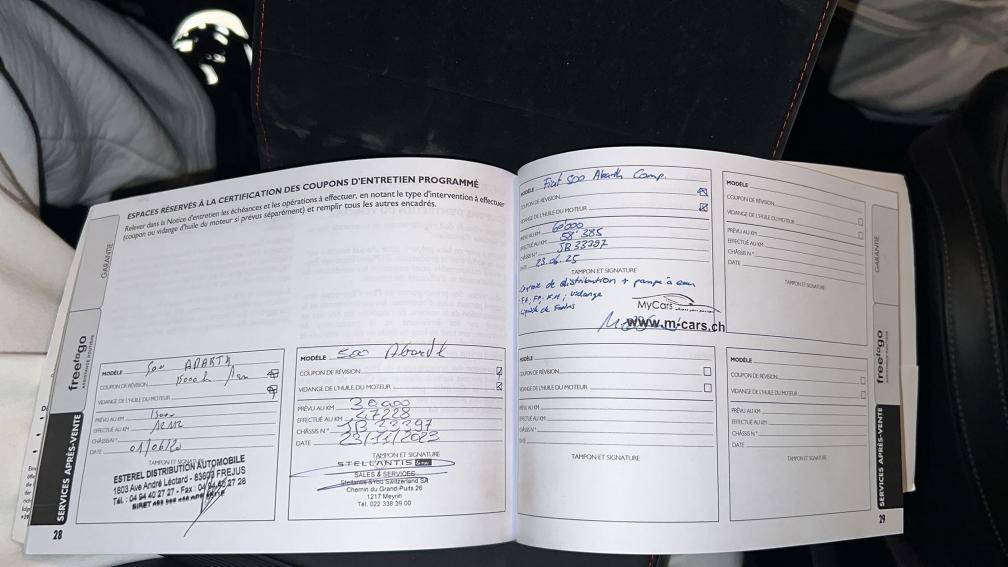 ESPACES RÉSERVÉS À LA CERTIFICATION DES COUPONS D'ENTRETIEN PROGRAMMÉ
Relever dans la Notice d'entretien les échéances et les opérations à effectuer, en notant le type d'intervention à effectuer
(coupon ou vidange d'huile du moteur si prévus séparément) et remplir tous les autres encadrés.
GARANTIE
freetogo
SERVICES APRÈS-VENTE
28
MODÈLE 500 ABARTH
COUPON DE RÉVISION
VIDANGE DE L'HUILE DU MOTEUR
PRÉVU AU KM
EFFECTUÉ AU KM
CHÂSSIS N°
DATE 01/06/20
TAMPON ET SIGNATURE
ESTEREL DISTRIBUTION AUTOMOBILE
1803 Ave André Léotard - 83600 FREJUS
Tél. : 04 94 40 27 27 - Fax : 04 94 40 27 28
MODÈLE 500 Abarth
COUPON DE RÉVISION
VIDANGE DE L'HUILE DU MOTEUR
PRÉVU AU KM 30.000
EFFECTUÉ AU KM 47228
CHÂSSIS N° JB33397
DATE 23/11/2023
TAMPON ET SIGNATURE
STELLANTIS
SALES & SERVICES
Stellantis &You Switzerland SA
Chemin du Grand-Puits 26
1217 Meyrin
Tél. 022 338 39 00
MODÈLE Fiat 500 Abarth Comp.
COUPON DE RÉVISION
VIDANGE DE L'HUILE DU MOTEUR
PRÉVU AU KM 60000
EFFECTUÉ AU KM 58'385
CHÂSSIS N° JB33397
DATE 23.06.25
TAMPON ET SIGNATURE
de distribution + pompe à eau
vidange
liquide de Freins
MyCars
www.m-cars.ch
MODÈLE
COUPON DE RÉVISION
VIDANGE DE L'HUILE DU MOTEUR
PRÉVU AU KM
EFFECTUÉ AU KM
CHÂSSIS N°
DATE
TAMPON ET SIGNATURE
MODÈLE
COUPON DE RÉVISION
VIDANGE DE L'HUILE DU MOTEUR
PRÉVU AU KM
EFFECTUÉ AU KM
CHÂSSIS N°
DATE
TAMPON ET SIGNATURE
MODÈLE
COUPON DE RÉVISION
VIDANGE DE L'HUILE DU MOTEUR
PRÉVU AU KM
EFFECTUÉ AU KM
CHÂSSIS N°
DATE
TAMPON ET SIGNATURE
GARANTIE
freetogo
SERVICES APRÈS-VENTE
29